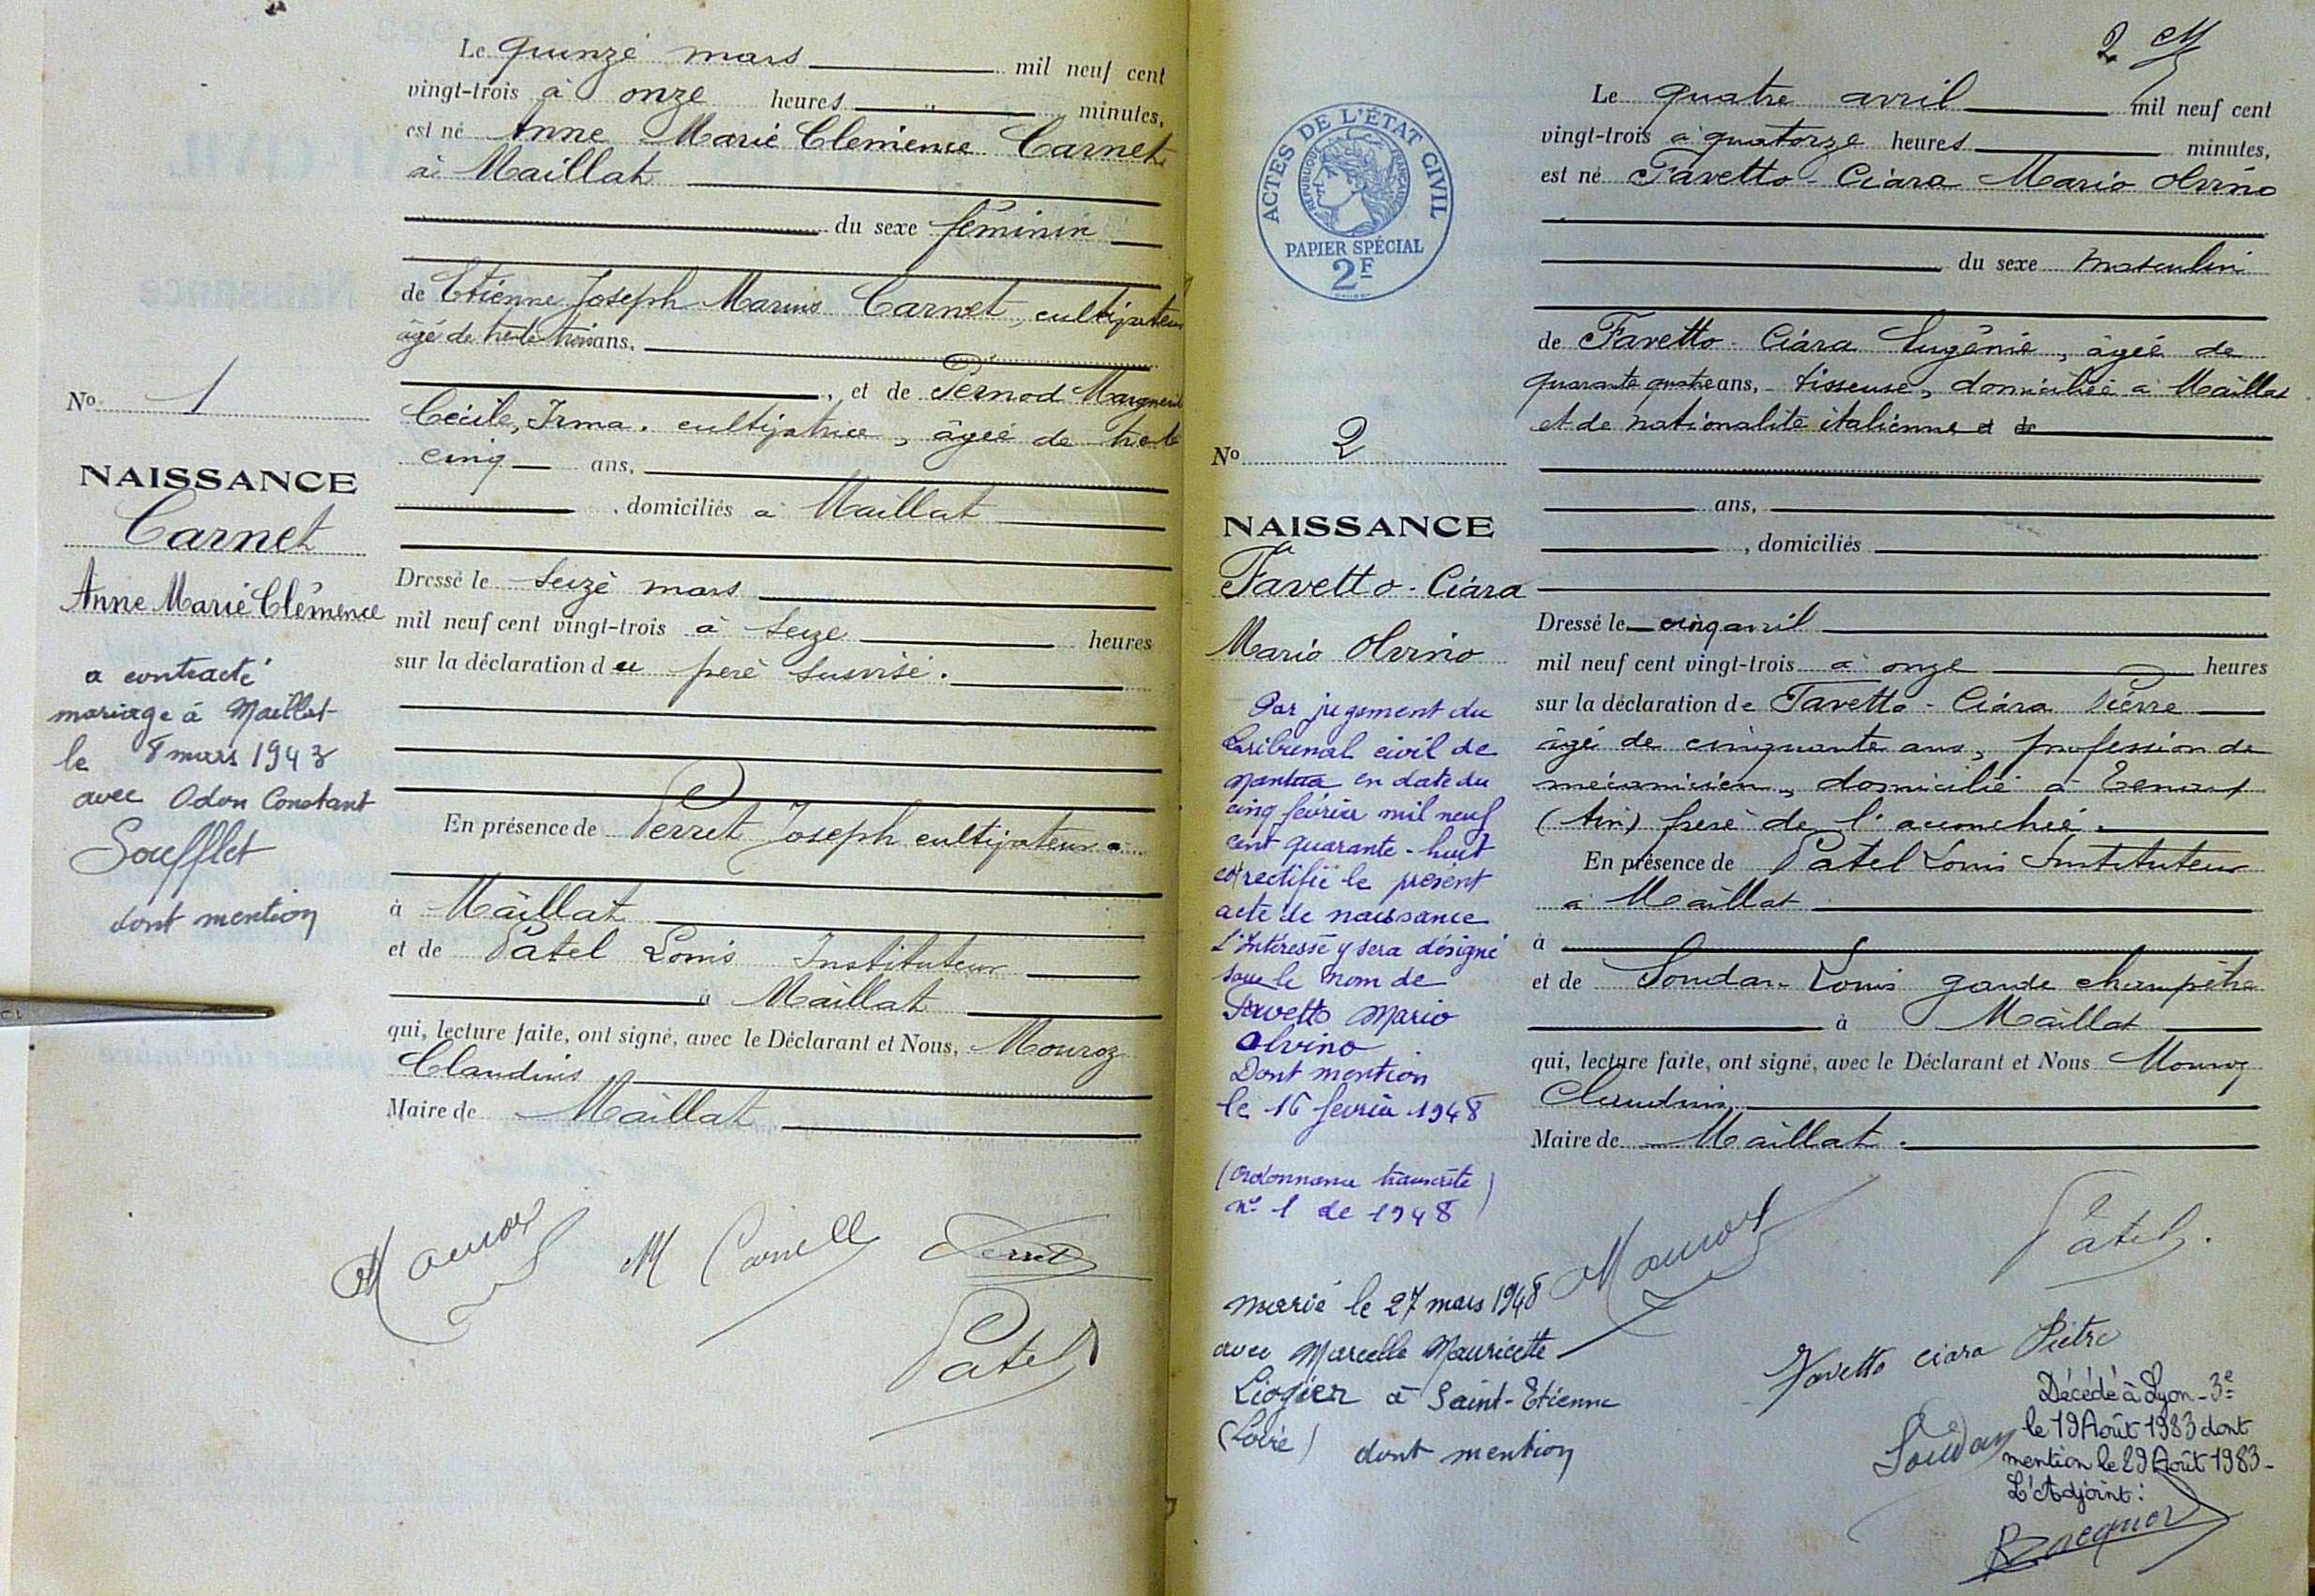 Le quinze mars mil neuf cent
vingt-trois à onze heures " minutes,
est né Anne Marie Clémence Carnet
à Maillat
du sexe féminin
de Etienne Joseph Marius Carnet, cultivateur
âgé de trente trois ans,
, et de Pernod Marguerite
Cécile, Irma. cultivatrice, âgée de trente
cinq ans,
, domiciliés à Maillat
Dressé le seize mars
mil neuf cent vingt-trois à seize heures
sur la déclaration du père susvisé.
En présence de Perret Joseph cultivateur à
à Maillat
et de Patel Louis Instituteur
à Maillat
qui, lecture faite, ont signé, avec le Déclarant et Nous, Mouroz
Claudius
Maire de Maillat
Nº 1
NAISSANCE
Carnet
Anne Marie Clémence
a contracté
mariage à Maillat
le 8 mars 1943
avec Odon Constant
Soufflet
dont mention
Perret
Patel
2
ACTES DE L'ÉTAT CIVIL
RÉPUBLIQUE FRANÇAISE
PAPIER SPÉCIAL
2F
Le quatre avril mil neuf cent
vingt-trois à quatorze heures minutes,
est né Favetto-Ciara Mario Olvino
du sexe masculin
de Favetto-Ciara Eugénie, âgée de
quarante quatre ans, tisseuse, domiciliée à Maillat
et de nationalité italienne et de
ans,
, domiciliés
Dressé le cinq avril
mil neuf cent vingt-trois à onze heures
sur la déclaration de Favetto-Ciara Pierre
âgé de cinquante ans, profession de
mécanicien, domicilié à Tenay
(Ain) frère de l'accouchée.
En présence de Patel Louis Instituteur
à Maillat
à
et de Soudan Louis garde champêtre
à Maillat
qui, lecture faite, ont signé, avec le Déclarant et Nous Mouroz
Claudius
Maire de Maillat.
Nº 2
NAISSANCE
Favetto-Ciara
Mario Olvino
Par jugement du
tribunal civil de
Nantua en date du
cinq février mil neuf
cent quarante-huit
est rectifié le présent
acte de naissance
L'Intéressé y sera désigné
sous le nom de
Favetto Mario
Olvino
Dont mention
le 16 février 1948
(Ordonnance transcrite)
nº 1 de 1948
marié le 27 mars 1948
avec Marcelle Mauricette
Liogier à Saint-Etienne
(Loire) dont mention
Mouroz
Patel.
Favetto Ciara Pietro
Soudan
Décédé à Lyon-3e
le 19 Août 1983 dont
mention le 29 Août 1983-
L'Adjoint: